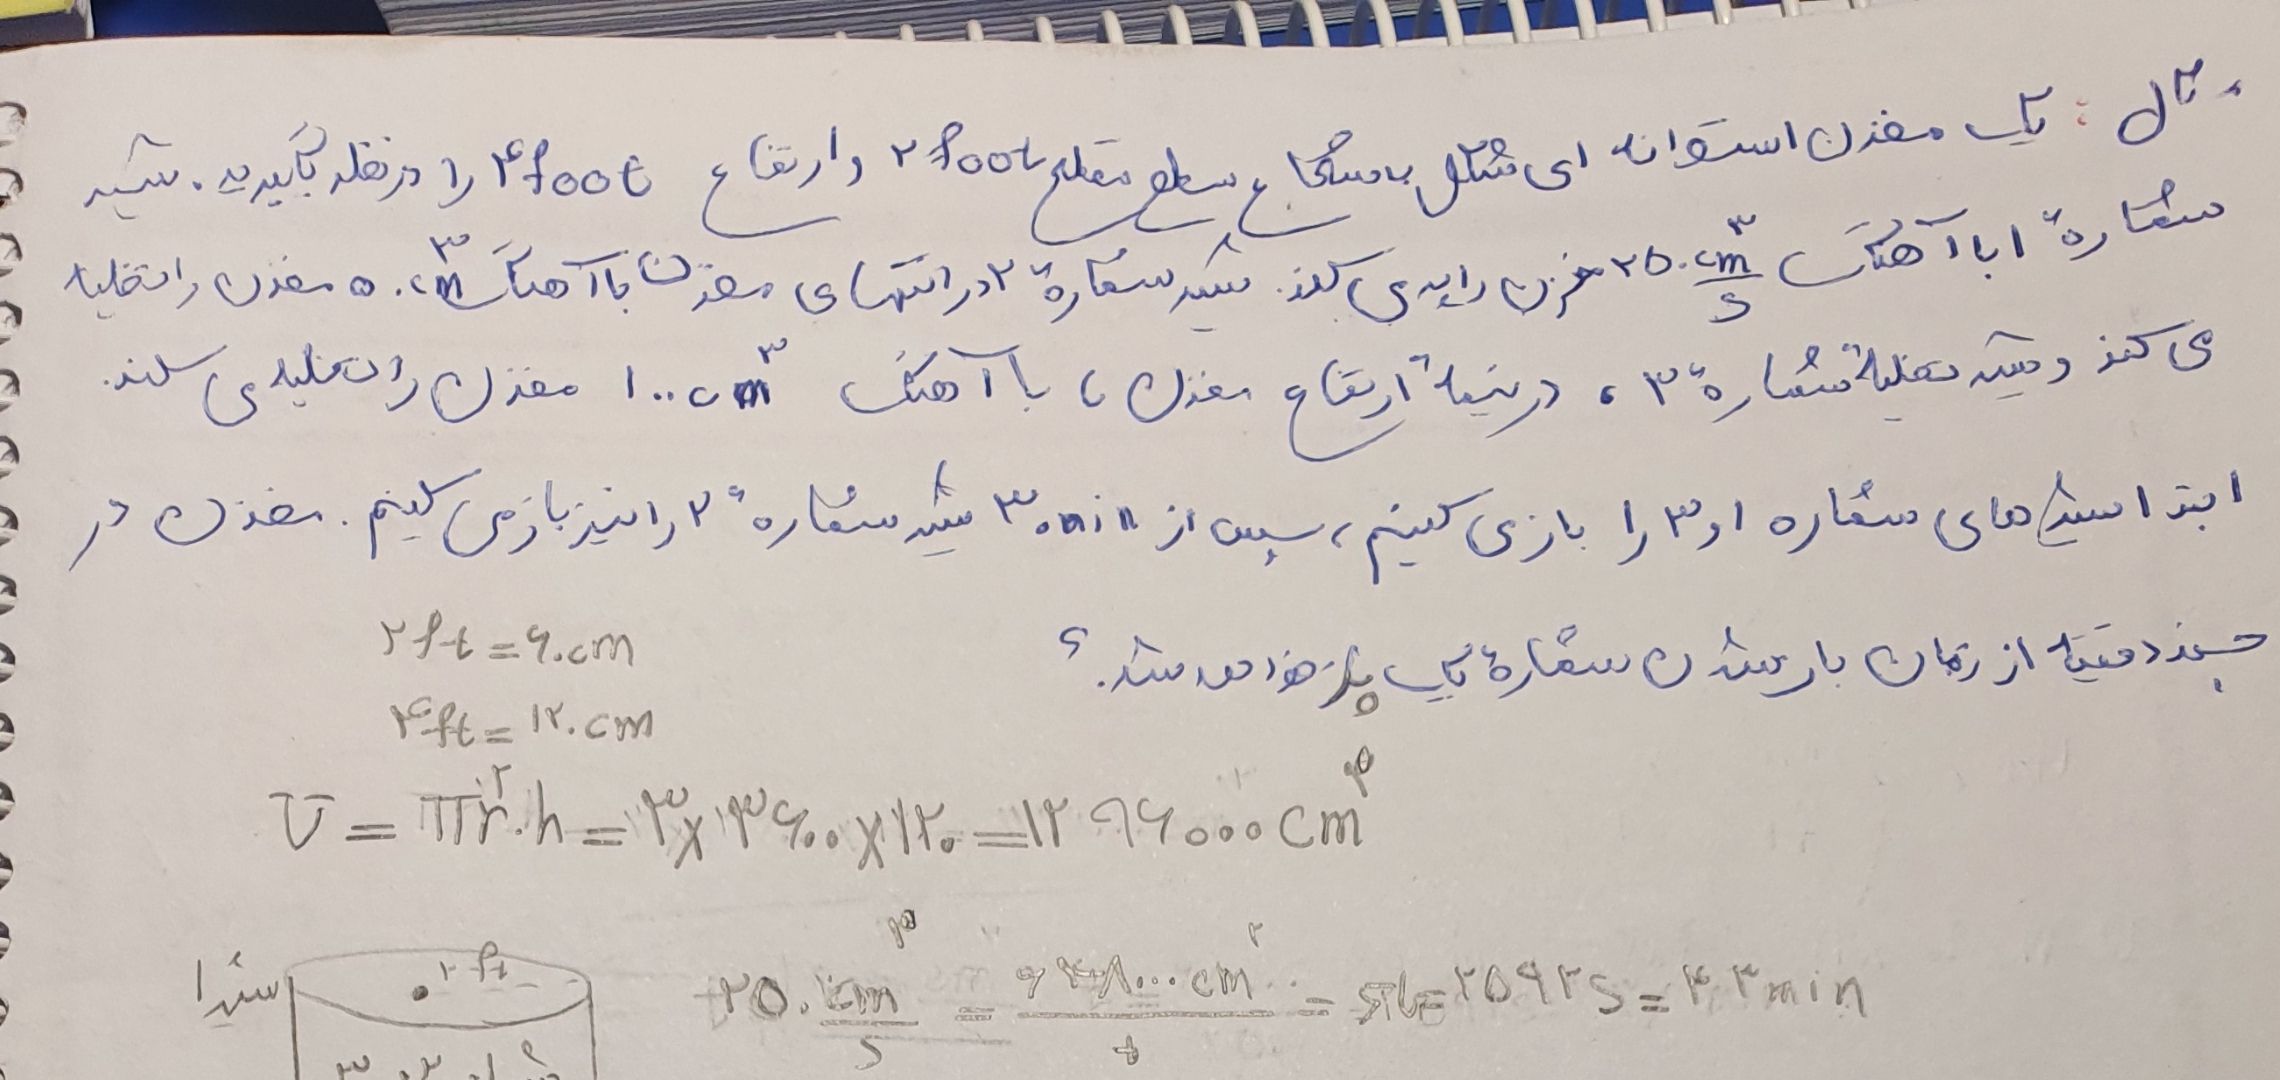 مثال : یک مخزن استوانه ای شکل به شعاع سطح مقطع ۲foot و ارتفاع ۴foot را در نظر بگیرید. شیر
شمارهٔ ۱ با آهنگ ۲۵۰ cm³/s مخزن را پر می کند. شیر شمارهٔ ۲ در انتهای مخزن با آهنگ ۵۰ cm³ مخزن را تخلیه
می کند و شیر تخلیهٔ شمارهٔ ۳ ، در نیمهٔ ارتفاع مخزن ، با آهنگ ۱۰۰ cm³ مخزن را تخلیه می کند.
ابتدا شیرهای شماره ۱ و ۳ را باز می کنیم ، سپس از ۳۰min شیر شمارهٔ ۲ را نیز باز می کنیم . مخزن در
چند دقیقه از زمان باز شدن شمارهٔ یک پر خواهد شد. ؟
۲ft = ۶۰cm
۴ft = ۱۲۰cm
V = πr².h = ۳×۳۶۰۰×۱۲۰ = ۱۲۹۶۰۰۰ cm³
شیر۱
۲ft
۲۵۰ cm³/s = ۶۴۸۰۰۰ cm³/t = ۲۵۹۲s = ۴۳min